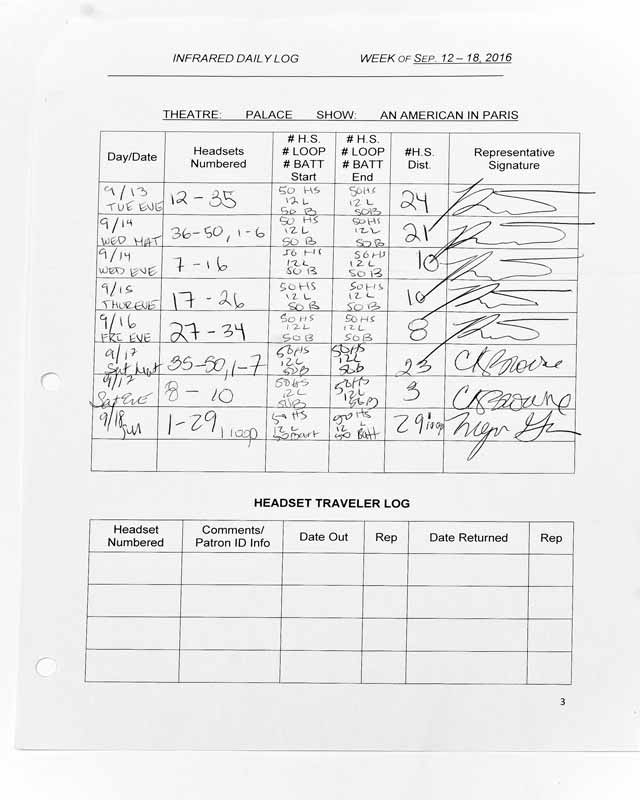 INFRARED DAILY LOG WEEK OF SEP. 12 – 18, 2016
THEATRE: PALACE SHOW: AN AMERICAN IN PARIS
Day/Date
Headsets
Numbered
# H.S.
# LOOP
# BATT
Start
# H.S.
# LOOP
# BATT
End
#H.S.
Dist.
Representative
Signature
9/13
TUE EVE
12 - 35
50 HS
12 L
50 B
50HS
12 L
50B
24
9/14
WED MAT
36-50, 1-6
50 HS
12 L
50 B
50HS
12 L
50 B
21
9/14
WED EVE
7 - 16
50 HS
12L
50 B
50HS
12L
50 B
10
9/15
THUR EVE
17 - 26
50HS
12 L
50B
50HS
12L
50 B
10
9/16
FRI EVE
27 - 34
50HS
12L
50B
50HS
12L
50B
8
9/17
Sat Mat
35-50, 1-7
50HS
12L
50B
50HS
12L
50b
23
CKBrowne
9/17
Sat Eve
8 - 10
50HS
12L
50B
50HS
12L
50B
3
CKBrowne
9/18
Sun
1-29, 1 loop
50 HS
12 L
50 Batt
50 HS
12 L
50 Batt
29 1 loop
HEADSET TRAVELER LOG
Headset
Numbered
Comments/
Patron ID Info
Date Out
Rep
Date Returned
Rep
3